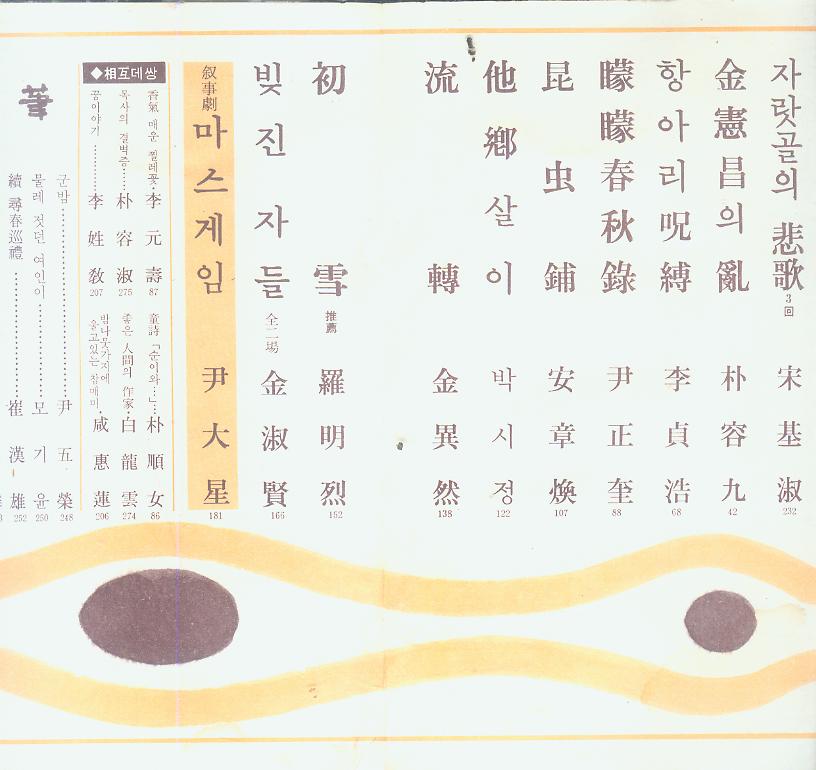 자랏골의 悲歌 3回 宋基淑 232
金憲昌의 亂 朴容九 42
항아리呪縛 李貞浩 68
矇矇春秋錄 尹正奎 88
昆虫鋪 安章煥 107
他鄕살이 박시정 122
流轉 金異然 138
初雪 推薦 羅明烈 152
빚진 자들 全二場 金淑賢 166
叙事劇 마스게임 尹大星 181
◆相互데쌍
香氣 매운 찔레꽃 李元壽 87
목사의 결벽증…… 朴容淑 275
꿈이야기 ……… 李姓敎 207
童詩「순이와…」… 朴順女 86
좋은 人間의 作家 白龍雲 274
밤나뭇가지에 울고있는 참매미 咸惠蓮 206
筆
군밤 尹五榮 248
물레 젓던 여인이 모기윤 250
續 尋春巡禮 崔漢雄 252